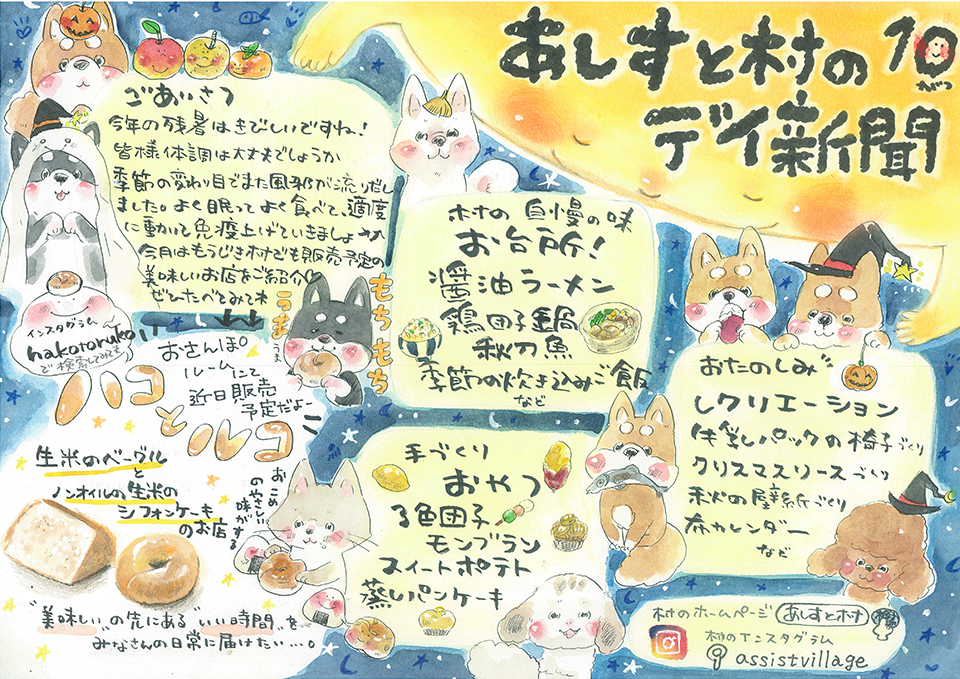 あしすと村の
デイ新聞
10
がつ
ごあいさつ
今年の残暑はきびしいですね!
皆様体調は大丈夫でしょうか
季節の変わり目でまた風邪が流行だし
ました。よく眠ってよく食べて、適度
に動いて免疫上げていきましょうね
今月はもうじき村でも販売予定の
美味しいお店をご紹介!
ぜひたべてみてね
インスタグラム〜
hakotoruko
で検索してみてね
おさんぽ
ルームにて
近日販売
予定だよー
もちもち
うまうま
ハコとルコ
生米のベーグル
と
ノンオイルの生米の
シフォンケーキ
のお店
おこめの
やさしい
味がする
"美味しい"の先にある"いい時間"を
みなさんの日常に届けたい…。
村の自慢の味
お台所!
醤油ラーメン
鶏団子鍋
秋刀魚
季節の炊き込みご飯
など
手づくり
おやつ
3色団子
モンブラン
スイートポテト
蒸しパンケーキ
おたのしみ
レクリエーション
牛乳パックの椅子づくり
クリスマスリースづくり
秋の壁紙づくり
布カレンダー
など
村のホームページ あしすと村
村のインスタグラム
assistvillage